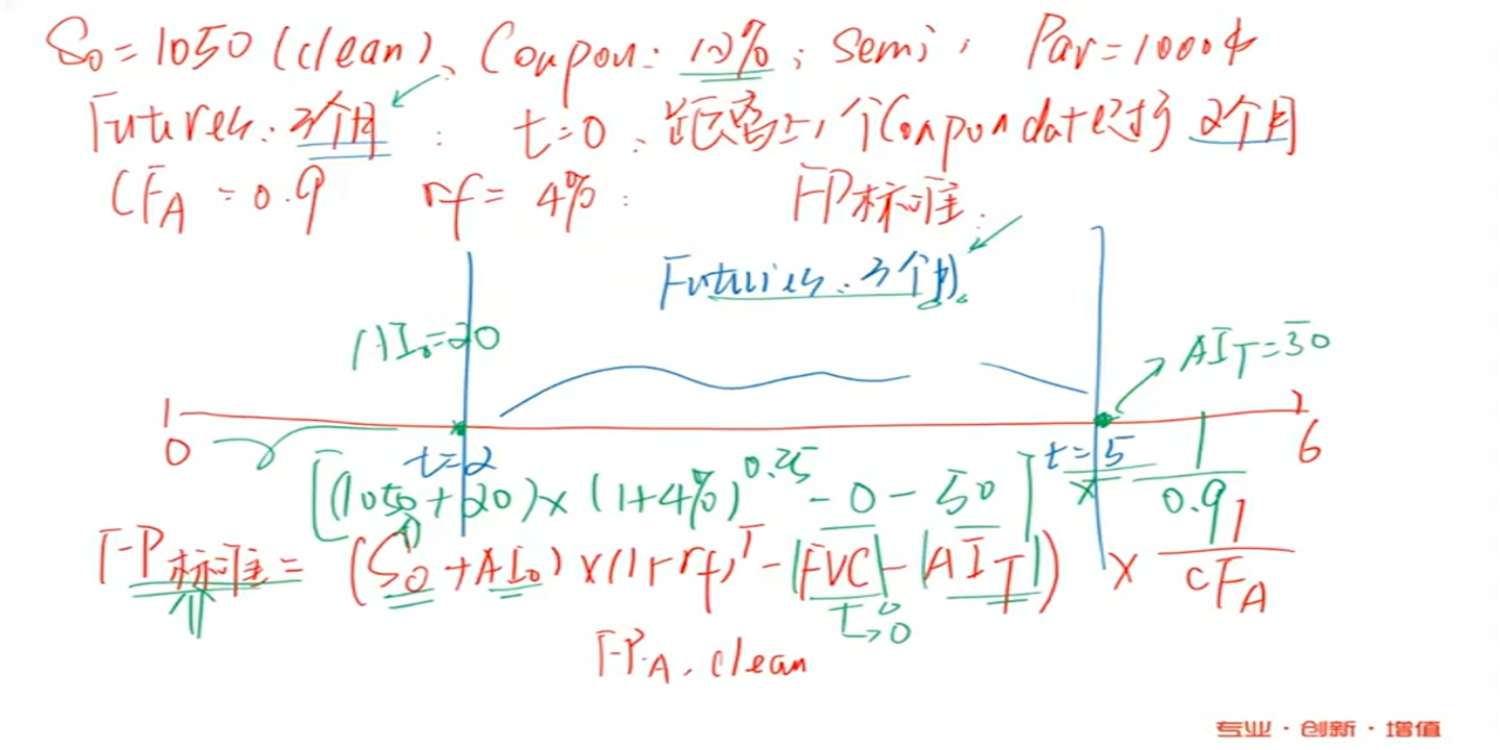 S₀=1050 (clean)、Coupon: 12%; Semi, Par=1000$
Futures: 3个月: t=0, 距离上1个Coupon date已过了2个月
CF_A = 0.9 rf = 4%: FP标准.
Futures: 3个月
AI₀=20
AI_T=50
0 t=2 t=5 6
[(1050+20)×(1+4%)^0.25 - 0 - 50] × 1/0.9
FP标准 = (S₀+AI₀)×(1+rf)^T - FVC - AI_T) × 1/CF_A
→0
FP_A, clean
专业·创新·增值